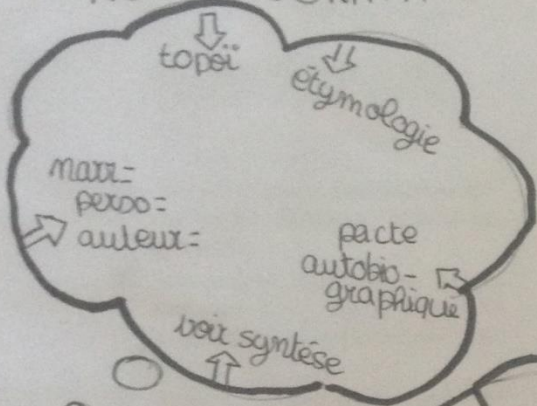 topoï
étymologie
narr=
perso=
auteur=
pacte
autobio-
graphique
voir syntése